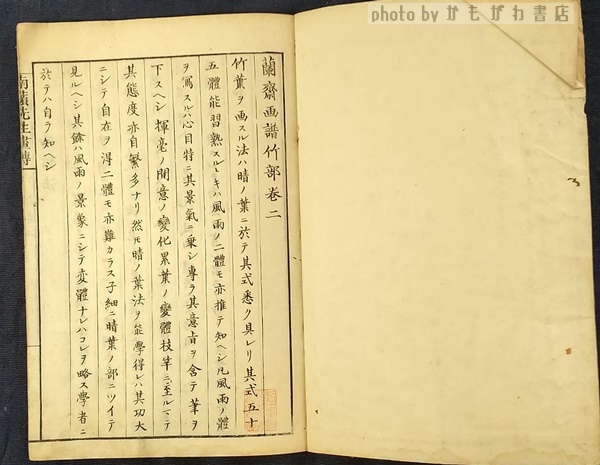 photo by かもがわ書店
蘭齋画譜竹部巻二
竹葉ヲ画スル法ハ晴ノ葉ニ於テ其式悉ク具レリ其式五十
五體能習熟スルトキハ風雨ノ二體モ亦推テ知ヘシ凡風雨ノ體
ヲ寫スルハ心目特ニ其景氣ニ乗シ専ラ其意旨ヲ含テ筆ヲ
下スヘシ揮毫ノ間意ノ變化累葉ノ變體枝竿ニ至ルマテ
其態度亦自繁多ナリ然𪜈晴ノ葉法ヲ能學得レハ其功大
ニシテ自在ヲ得二體モ亦難カラス子細ニ晴葉ノ部ニツイテ
見ルヘシ其餘ハ風雨ノ景象ニシテ変體ナレハコレヲ略ス學者ニ
於テハ自ラ知ヘシ
南蘋先生畫傳